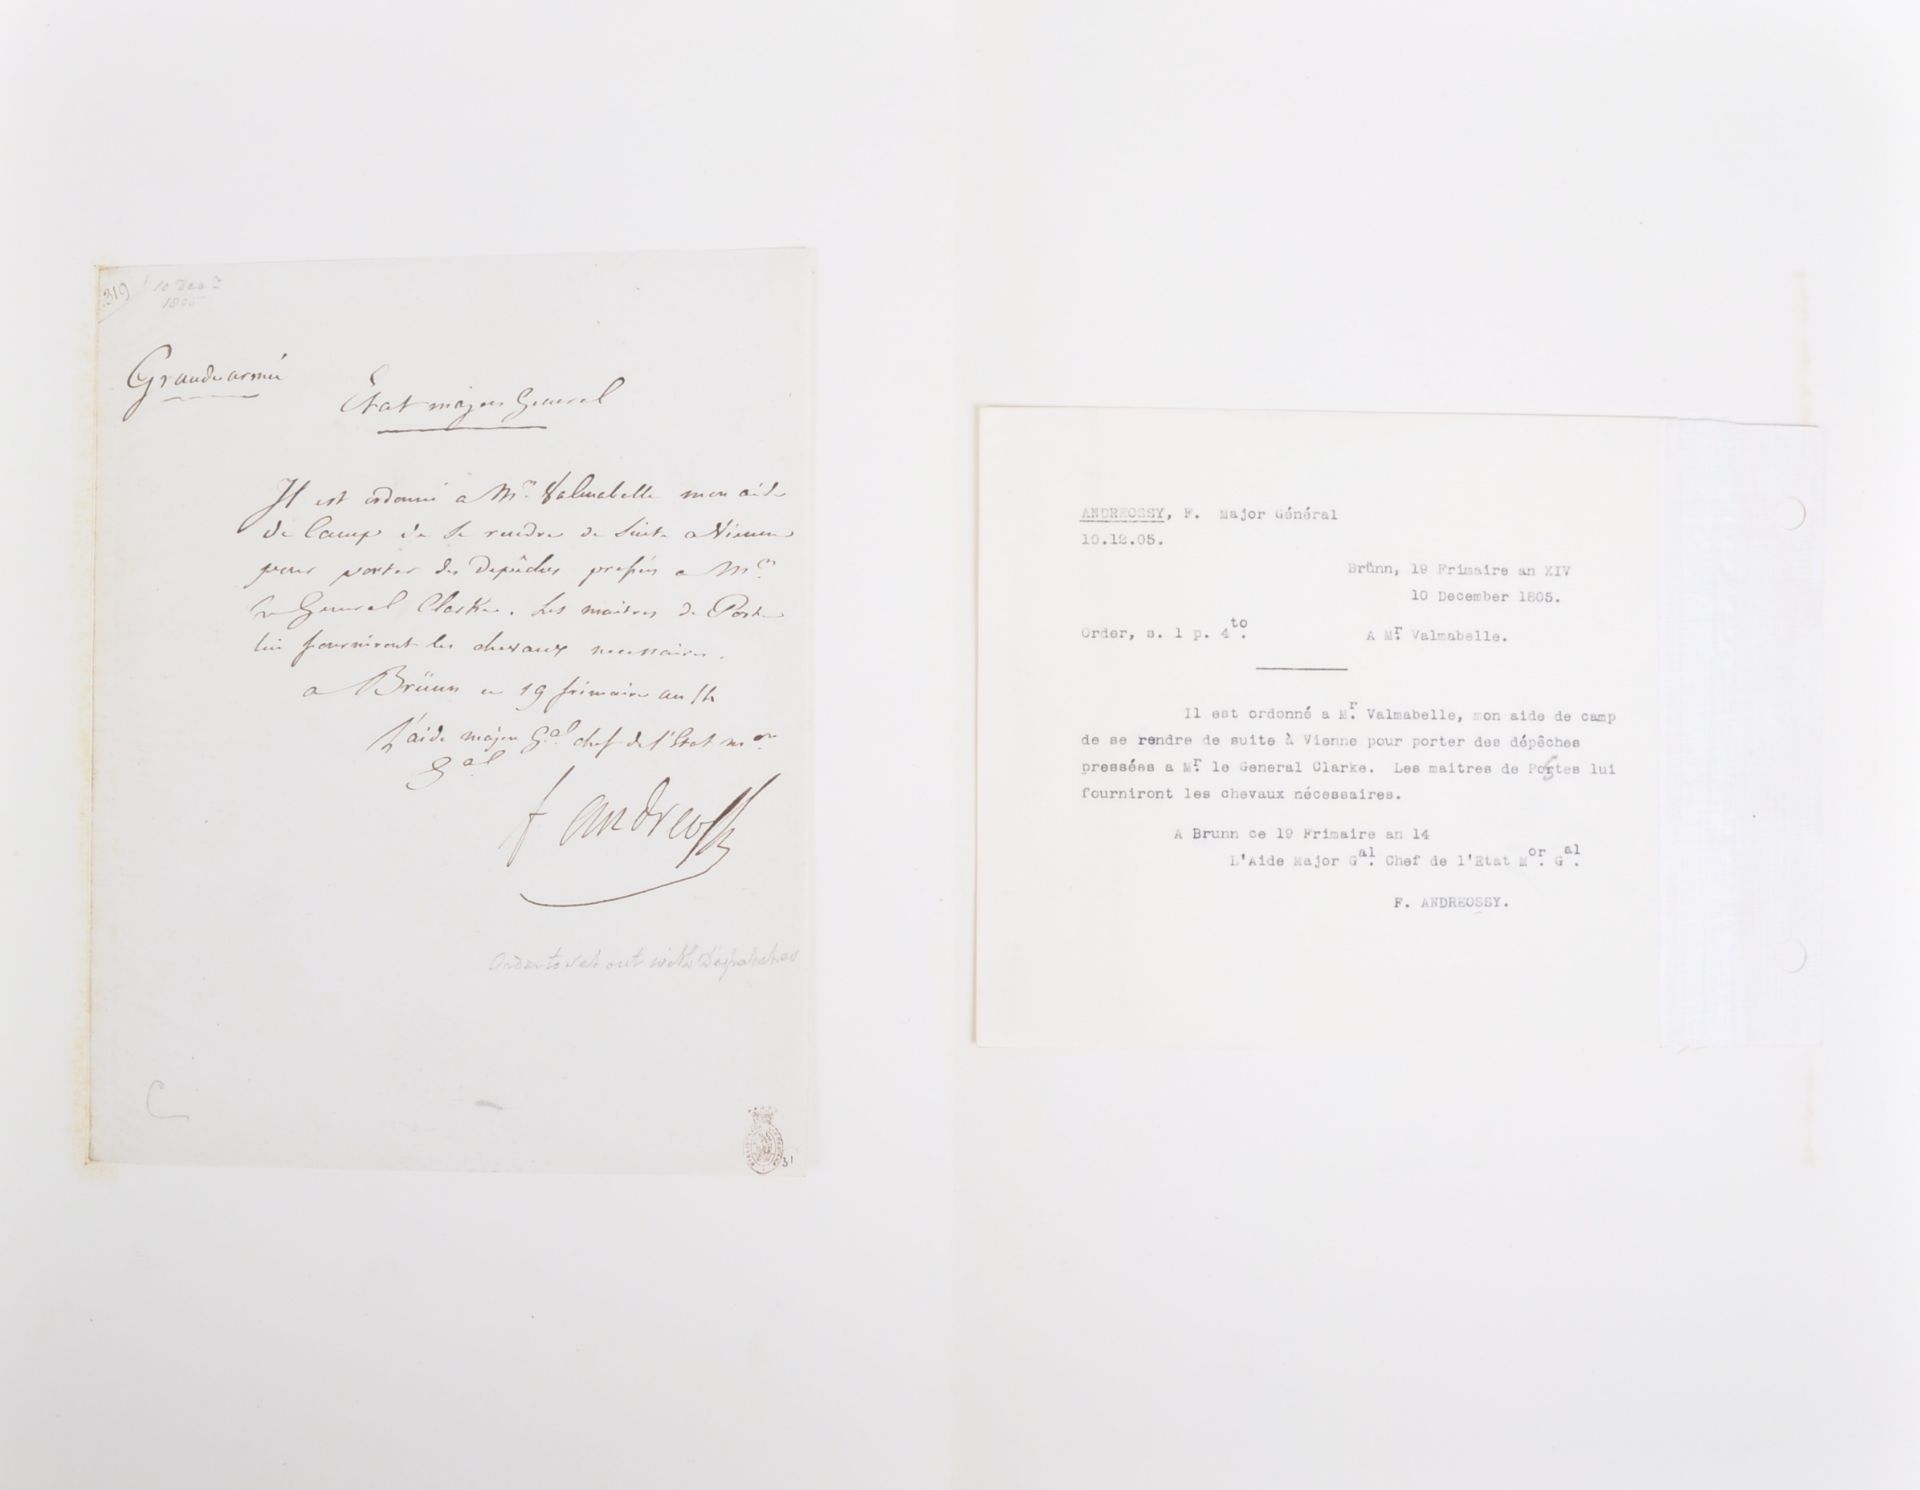 319
10 Dec r
1805
Grande armée
Etat major General
Il est ordonné a Mr. Valmabelle mon aide
de Camp de se rendre de suite a Vienne
pour porter des depêches pressées a Mr.
le General Clarke. Les maitres de Poste
lui fourniront les chevaux necessaires.
a Brünn ce 19 frimaire an 14
L'aide major Gal. chef de l'Etat mor.
Gal.
f andreossy
Order to set out with Despatches
C
31
ANDREOSSY, F. Major Général
10.12.05.
Brünn, 19 Frimaire an XIV
10 December 1805.
Order, s. 1 p. 4to.
A Mr. Valmabelle.
Il est ordonné a Mr. Valmabelle, mon aide de camp
de se rendre de suite à Vienne pour porter des dépêches
pressées a Mr. le General Clarke. Les maitres de Postes lui
fourniront les chevaux nécessaires.
A Brunn ce 19 Frimaire an 14
L'Aide Major Gal. Chef de l'Etat Mor. Gal.
F. ANDREOSSY.